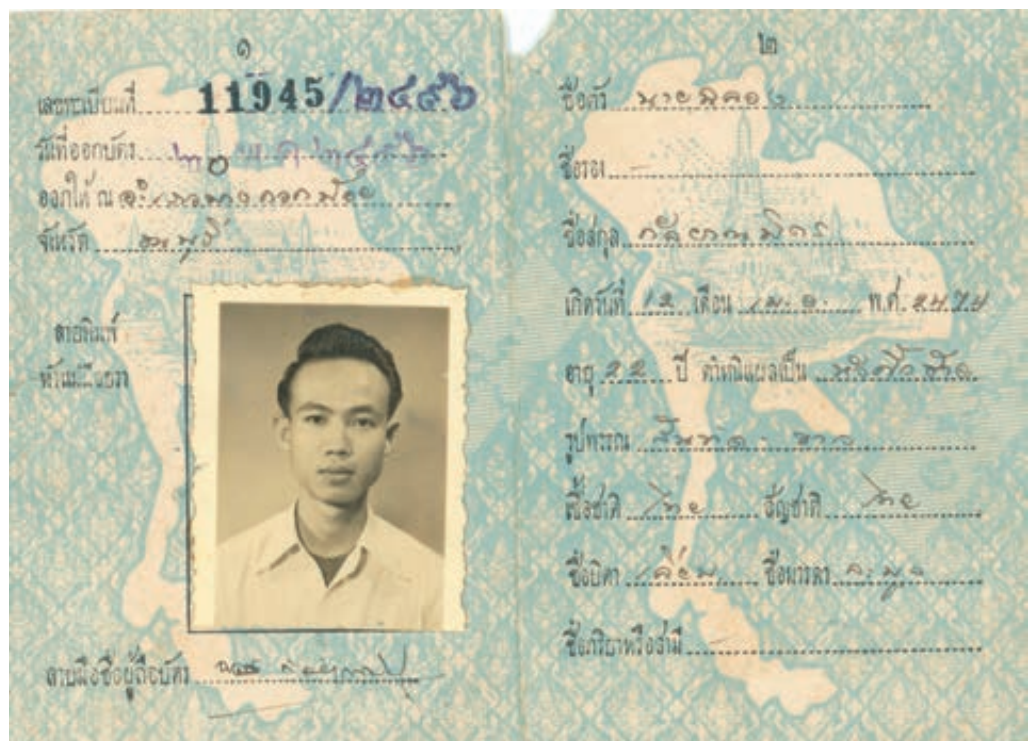 ๑
เลขทะเบียนที่ 11945/๒๔๙๖
วันที่ออกบัตร ๒๐ พ.ค. ๒๔๙๖
ออกให้ ณ อำเภอบางกอกน้อย
จังหวัด ธนบุรี
ลายพิมพ์
หัวแม่มือขวา
ลายมือชื่อผู้ถือบัตร
๒
ชื่อตัว นาย
ชื่อรอง -
ชื่อสกุล กัลยาณมิตร
เกิดวันที่ 12 เดือน เม.ย. พ.ศ. 2474
อายุ 22 ปี ตำหนิแผลเป็น
รูปพรรณ สันทัด - ขาว
เชื้อชาติ ไทย สัญชาติ ไทย
ชื่อบิดา ชื่อมารดา
ชื่อภริยาหรือสามี